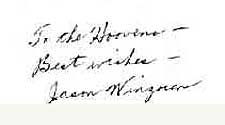 To the Hoovens —
Best wishes —
Jason Wingreen